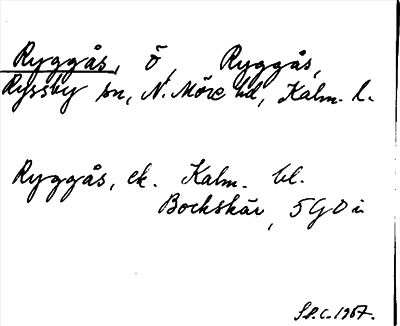 Ryggås, ö, Ryggås,
Ryssby sn, N. Möre hd, Kalm. l.
Ryggås, ek. Kalm. bl.
Bockskär, 5G0i
S.P.C. 1967.